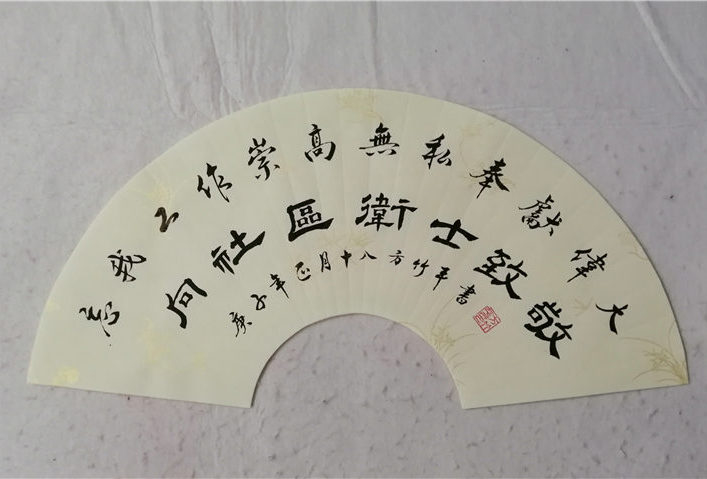 工作崇高無私奉獻偉大
向社區衛士致敬
庚子年正月十八方竹平書